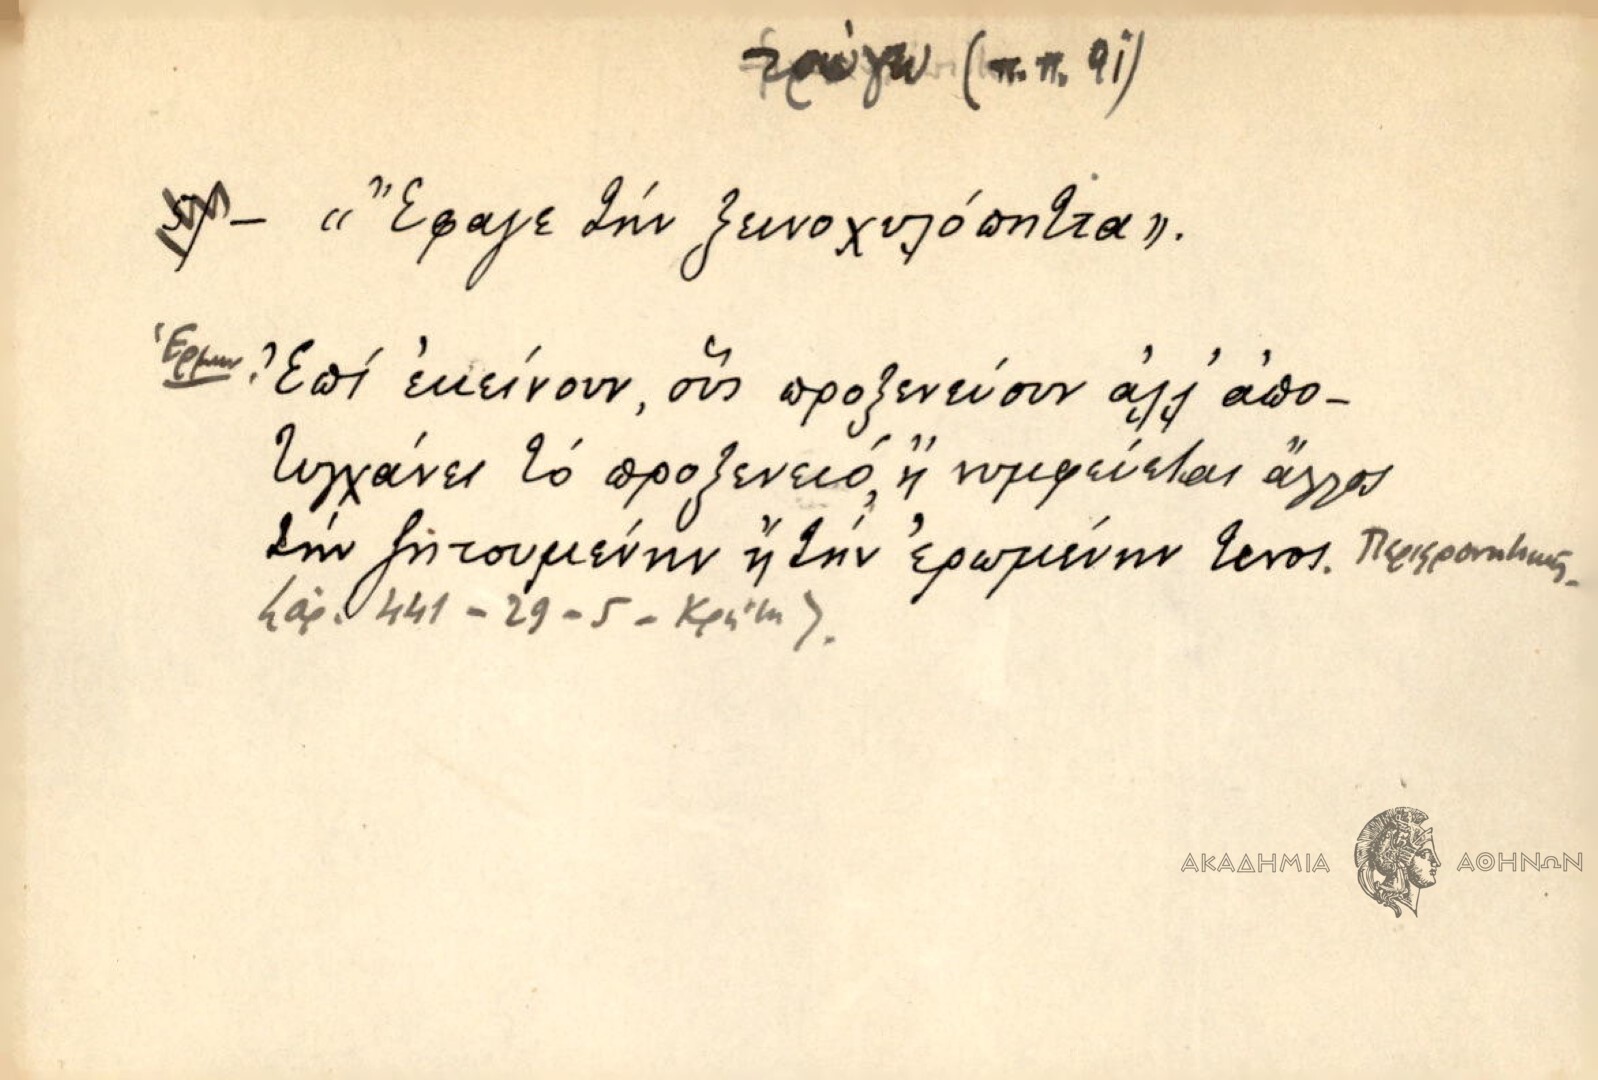 τρώγω (π.π. 91)
5/ – «Ἔφαγε τήν ξεινοχυλόπηττα».
Ἑρμην. Ἐπί ἐκείνουν, οὓς προξενεύουν ἀλλ' ἀπο-
τυγχάνει τό προξενειό, ἤ νυμφεύεται ἄλλος
τήν ζητουμένην ἤ τήν ἐρωμένην τινος. Περιφρονητικῶς.
(ἀρ. 441 - 29 - 5 - Κρήτη).
ΑΚΑΔΗΜΙΑ ΑΘΗΝΩΝ